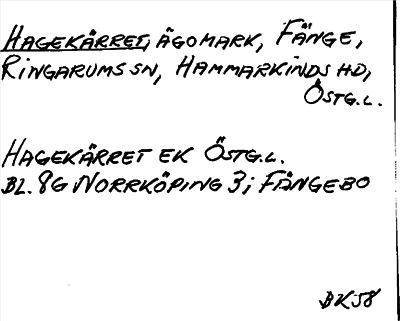 HAGEKÄRRET, ÄGOMARK, FÄNGE,
RINGARUMS SN, HAMMARKINDS HD,
ÖSTG.L.
HAGEKÄRRET EK ÖSTG.L.
BL. 8G NORRKÖPING 3; FÄNGEBO
BK58